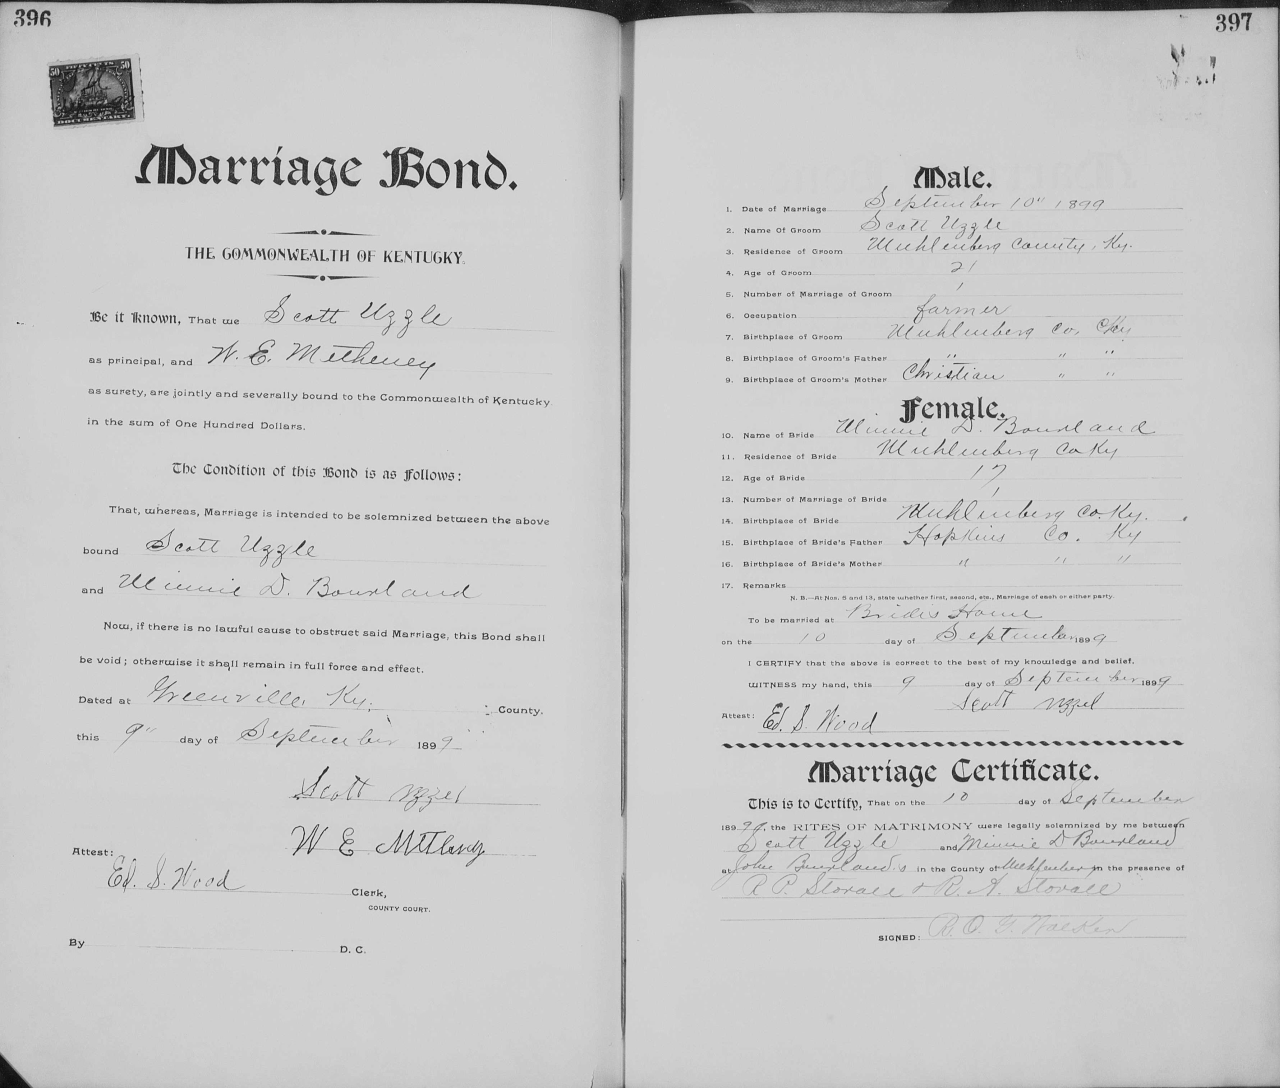 396
50 FIFTY CENTS 50
DOCUMENTARY.
Marriage Bond.
THE COMMONWEALTH OF KENTUCKY.
Be it Known, That we Scott Uzzle
as principal, and W. E. Metheney
as surety, are jointly and severally bound to the Commonwealth of Kentucky
in the sum of One Hundred Dollars.
The Condition of this Bond is as Follows:
That, whereas, Marriage is intended to be solemnized between the above
bound Scott Uzzle
and Minnie D. Bourland
Now, if there is no lawful cause to obstruct said Marriage, this Bond shall
be void; otherwise it shall remain in full force and effect.
Dated at Greenville, Ky. County.
this 9" day of September 1899
Scott Uzzel
W E
Attest:
Ed. S. Wood
Clerk,
COUNTY COURT.
By D. C.
397
Male.
1. Date of Marriage September 10" 1899
2. Name Of Groom Scott Uzzle
3. Residence of Groom Muhlenberg County, Ky.
4. Age of Groom 21
5. Number of Marriage of Groom 1
6. Occupation farmer
7. Birthplace of Groom Muhlenberg Co. Ky
8. Birthplace of Groom's Father " " "
9. Birthplace of Groom's Mother Christian " "
Female.
10. Name of Bride Minnie D. Bourland
11. Residence of Bride Muhlenberg Co Ky
12. Age of Bride 17
13. Number of Marriage of Bride 1
14. Birthplace of Bride Muhlenberg Co. Ky.
15. Birthplace of Bride's Father Hopkins Co. Ky
16. Birthplace of Bride's Mother " " "
17. Remarks
N. B.—At Nos. 5 and 13, state whether first, second, etc., Marriage of each or either party.
To be married at Brides Home
on the 10 day of September 1899
I CERTIFY that the above is correct to the best of my knowledge and belief.
WITNESS my hand, this 9 day of September 1899
Scott Uzzel
Attest: Ed. S. Wood
Marriage Certificate.
This is to Certify, That on the 10 day of September
1899, the RITES OF MATRIMONY were legally solemnized by me between
Scott Uzzle and Minnie D Bourland
at John Bourland's in the County of Muhlenberg in the presence of
R. P. Stovall & R. A. Stovall
SIGNED: